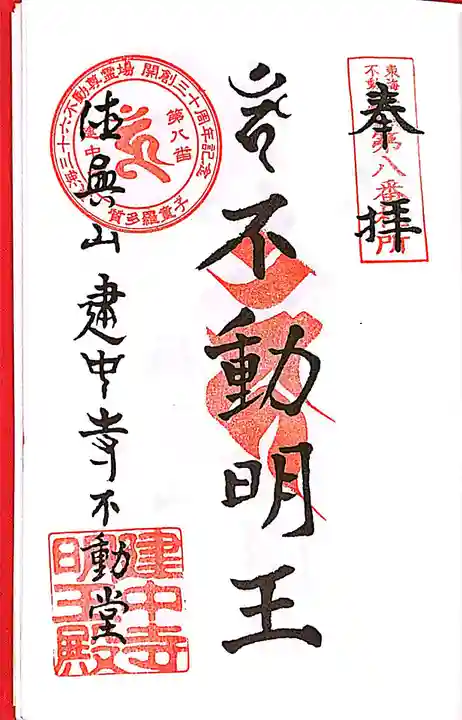 奉拝
東海
不動
第八番
所
不動明王
徳興山建中寺不動堂
東海三十六不動尊霊場 開創三十周年記念
第八番
建中寺
質多羅童子
建中寺
明王殿